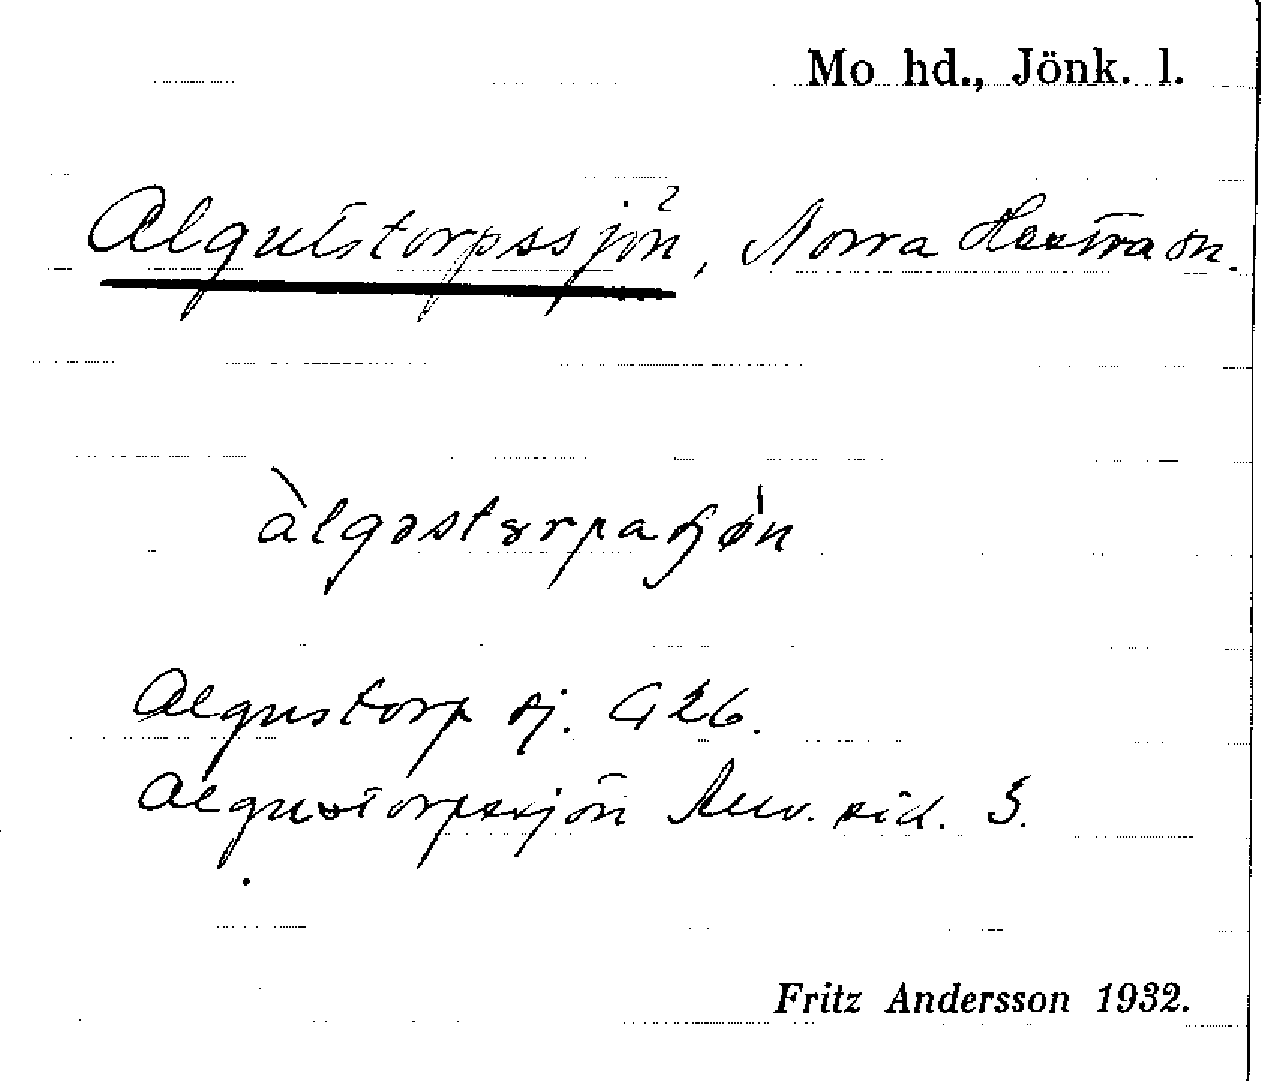 Mo hd., Jönk. l.
Algutstorpssjön, Norra Hestra sn.
àlgəstərpaʂjø̀n
Algustorp sj. G 26.
Algustorpssjön Auv. sid. 3.
Fritz Andersson 1932.